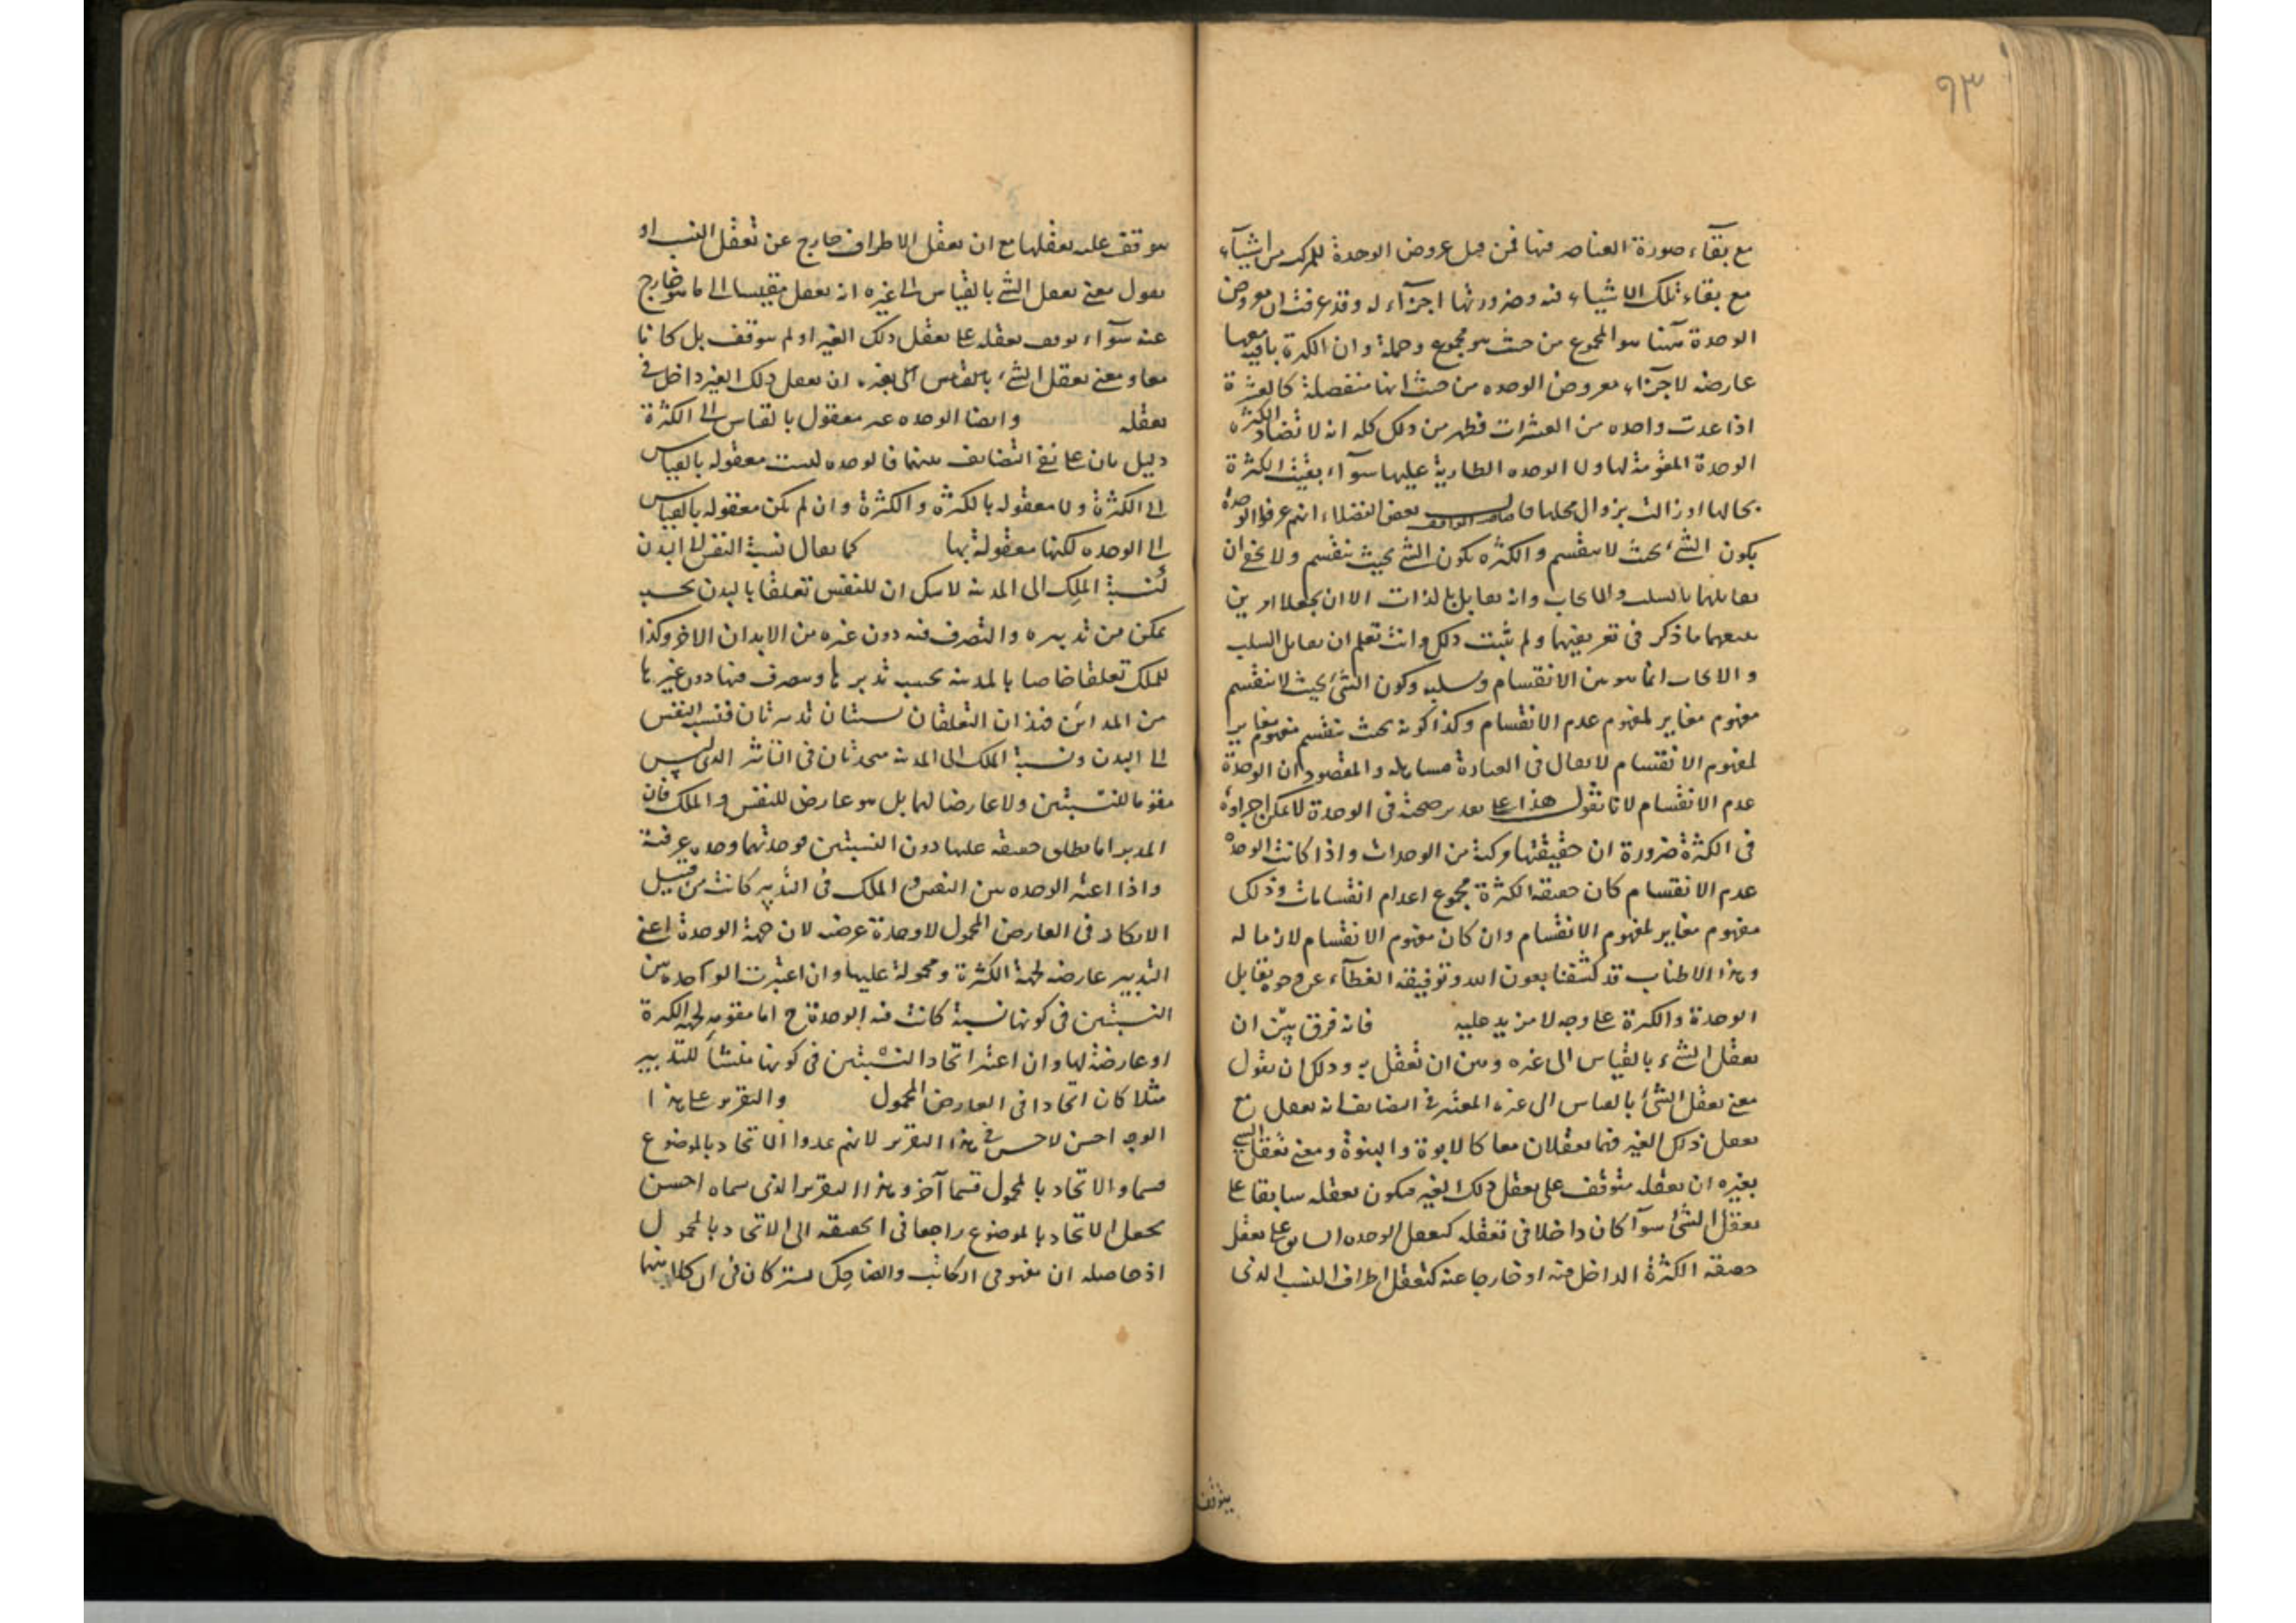 ٩٣
مع بقآء صورة العناصر فيها فمن قبل عروض الوحدة للمركب من اشيآء
مع بقاء تلك الاشياء فيه وضرورتها اجزآء له وقد عرفت ان معروض
الوحدة ههنا هو المجموع من حيث هو مجموع وجملة وان الكثرة باقية معها
عارضه لاجزاء معروض الوحده من حيث انها منفصلة كالعشرة
اذا عدت واحده من العشرات فظهر من ذلك كله انه لا تضاد الكثره
الوحدة المقومة لها ولا الوحده الطارية عليها سوآء بقيت الكثرة
بحالها او زالت بزوال محلها بعض الفضلاء انهم عرفوا الوحدة
بكون الشئ بحيث لا ينقسم والكثره بكون الشئ بحيث ينقسم ولا يخفى ان
تقابلهما بالسلب والايجاب وانه تقابل بالذات الا ان يجعلا امرين
يتبعهما ما ذكر فى تعريفيهما ولم يثبت ذلك وانت تعلم ان تقابل السلب
والايجاب انما هو بين الانقسام وسلبه وكون الشئ بحيث لا ينقسم
مفهوم مغاير لمفهوم عدم الانقسام وكذا كونه بحيث ينقسم مفهوم مغاير
لمفهوم الانقسام لا يقال فى العبارة مساهله والمقصود ان الوحدة
عدم الانقسام لانا نقول هذا على تقدير صحته فى الوحدة لا يمكن اجراوه
فى الكثرة ضرورة ان حقيقتها مركبة من الوحدات واذا كانت الوحدة
عدم الانقسام كان حقيقه الكثرة مجموع اعدام انقسامات وذلك
مفهوم مغاير لمفهوم الانقسام وان كان مفهوم الانقسام لازما له
وبهذا الاطناب قد كشفنا بعون الله وتوفيقه الغطآء عن وجوه تقابل
الوحدة والكثرة على وجه لا مزيد عليه فانه فرق بين ان
تعقل الشئ بالقياس الى غيره وبين ان تعقل به وذلك ان نقول
معنى تعقل الشئ بالقياس الى غيره المعتبر فى التضايف انه يعقل مع
تعقل ذلك الغير فهما يعقلان معا كالابوة والبنوة ومعنى تعقل الشئ
بغيره ان تعقله متوقف على تعقل ذلك الغير فيكون تعقله سابقا على
تعقل الشئ سوآ كان داخلا فى تعقله كتعقل الوحده السابق على تعقل
حقيقه الكثرة الداخل فيه او خارجا عنه كتعقل اطراف النسب الذى
يتوقف
يتوقف عليه تعقلها مع ان تعقل الاطراف خارج عن تعقل النسب او
نقول معنى تعقل الشئ بالقياس الى غيره انه يعقل مقيسا الى ما هو خارج
عنه سوآء توقف تعقله على تعقل ذلك الغير او لم يتوقف بل كانا
معا ومعنى تعقل الشئ بالقياس الى بغيره ان تعقل ذلك الغير داخل فى
تعقله وايضا الوحده غير معقول بالقياس الى الكثرة
دليل ثان على نفى التضايف بينهما فالوحده ليست معقوله بالقياس
الى الكثرة ولا معقوله بالكثره والكثرة وان لم يكن معقوله بالقياس
الى الوحده لكنها معقولة بها كما يقال نسبة النفس الى البدن
كنسبة الملك الى المدينه لا شك ان للنفس تعلقا بالبدن بحسبه
يمكن من تدبيره والتصرف فيه دون غيره من الابدان الاخر وكذا
للملك تعلقا خاصا بالمدينه بحسبه تدبرها ويتصرف فيها دون غيرها
من المدائن فهذان التعلقان نسبتان تدبيرتان فنسبة النفس
الى البدن ونسبة الملك الى المدينه متحدتان فى التدبير الذى ليس
مقوما للنسبتين ولا عارضا لهما بل هو عارض للنفس والملك فان
المدبر انما يطلق حقيقه عليهما دون النسبتين فوحدتهما وحده عرضية
واذا اعتبر الوحده بين النفس والملك فى التدبير كانت من قبيل
الاتحاد فى العارض المحمول لا وحدة عرضيه لان جهة الوحدة اعنى
التدبير عارضه لجهة الكثرة ومحمولة عليها وان اعتبرت الوحده بين
النسبتين فى كونها نسبة كانت فيه الوحدة ح اما مقومه لجهة الكثرة
او عارضة لها وان اعتبر اتحاد النسبتين فى كونها منشأ للتدبير
مثلا كان اتحادا فى العارض المحمول والتقرير على هذا
الوجه احسن لا حسن فى هذا التقرير لانهم عدوا الاتحاد بالموضوع
قسما والاتحاد بالمحمول قسما آخر وهذا التقرير الذى سماه احسن
يجعل الاتحاد بالموضوع راجعا فى الحقيقه الى الاتحاد بالمحمول
اذ حاصله ان مفهومى الكاتب والضاحك يشتركان فى ان كلا منهما